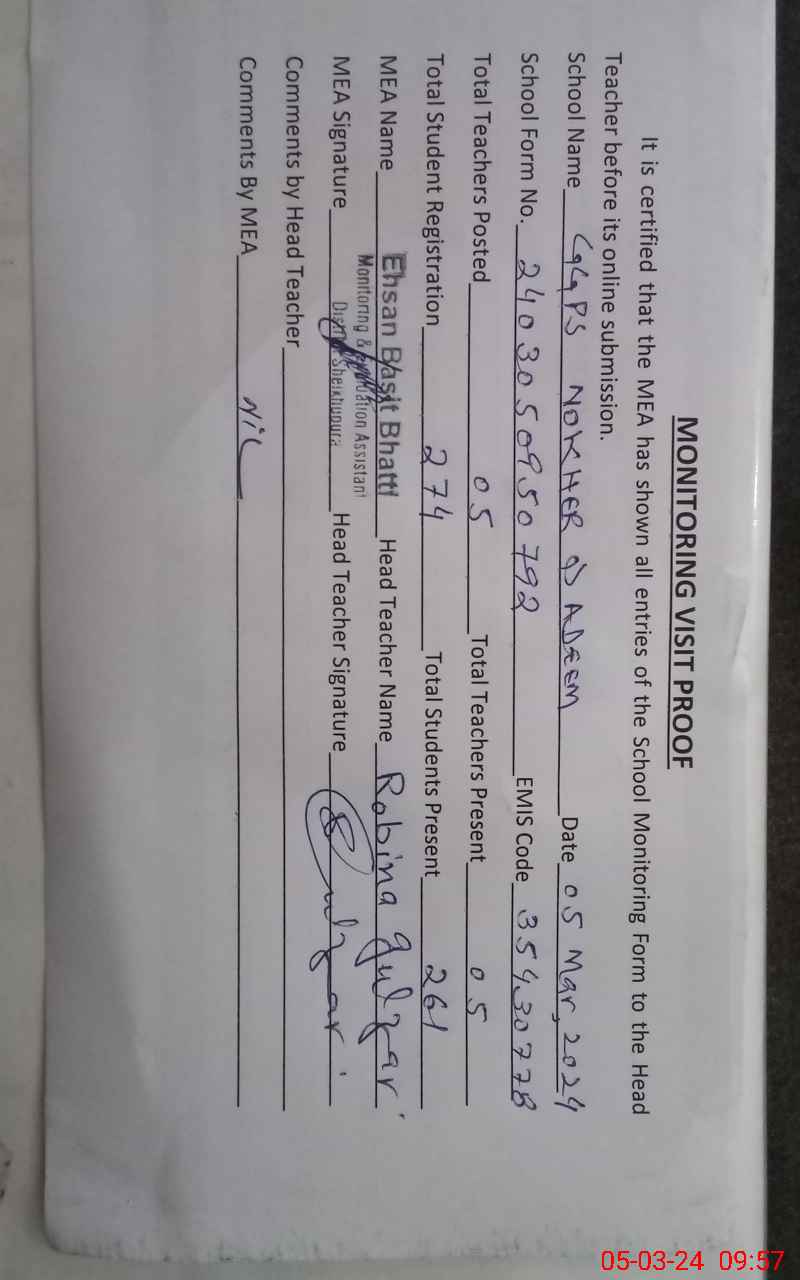 MONITORING VISIT PROOF
It is certified that the MEA has shown all entries of the School Monitoring Form to the Head
Teacher before its online submission.
School Name GGPS NOKHER QADEEM Date 05 Mar, 2024
School Form No. 2403050950792 EMIS Code 35430778
Total Teachers Posted 05 Total Teachers Present 05
Total Student Registration 274 Total Students Present 261
MEA Name Ehsan Basit Bhatti Head Teacher Name Robina Gulzar
Monitoring & Evaluation Assistant
MEA Signature District Sheikhupura Head Teacher Signature
Comments by Head Teacher
Comments By MEA Nil
05-03-24 09:57